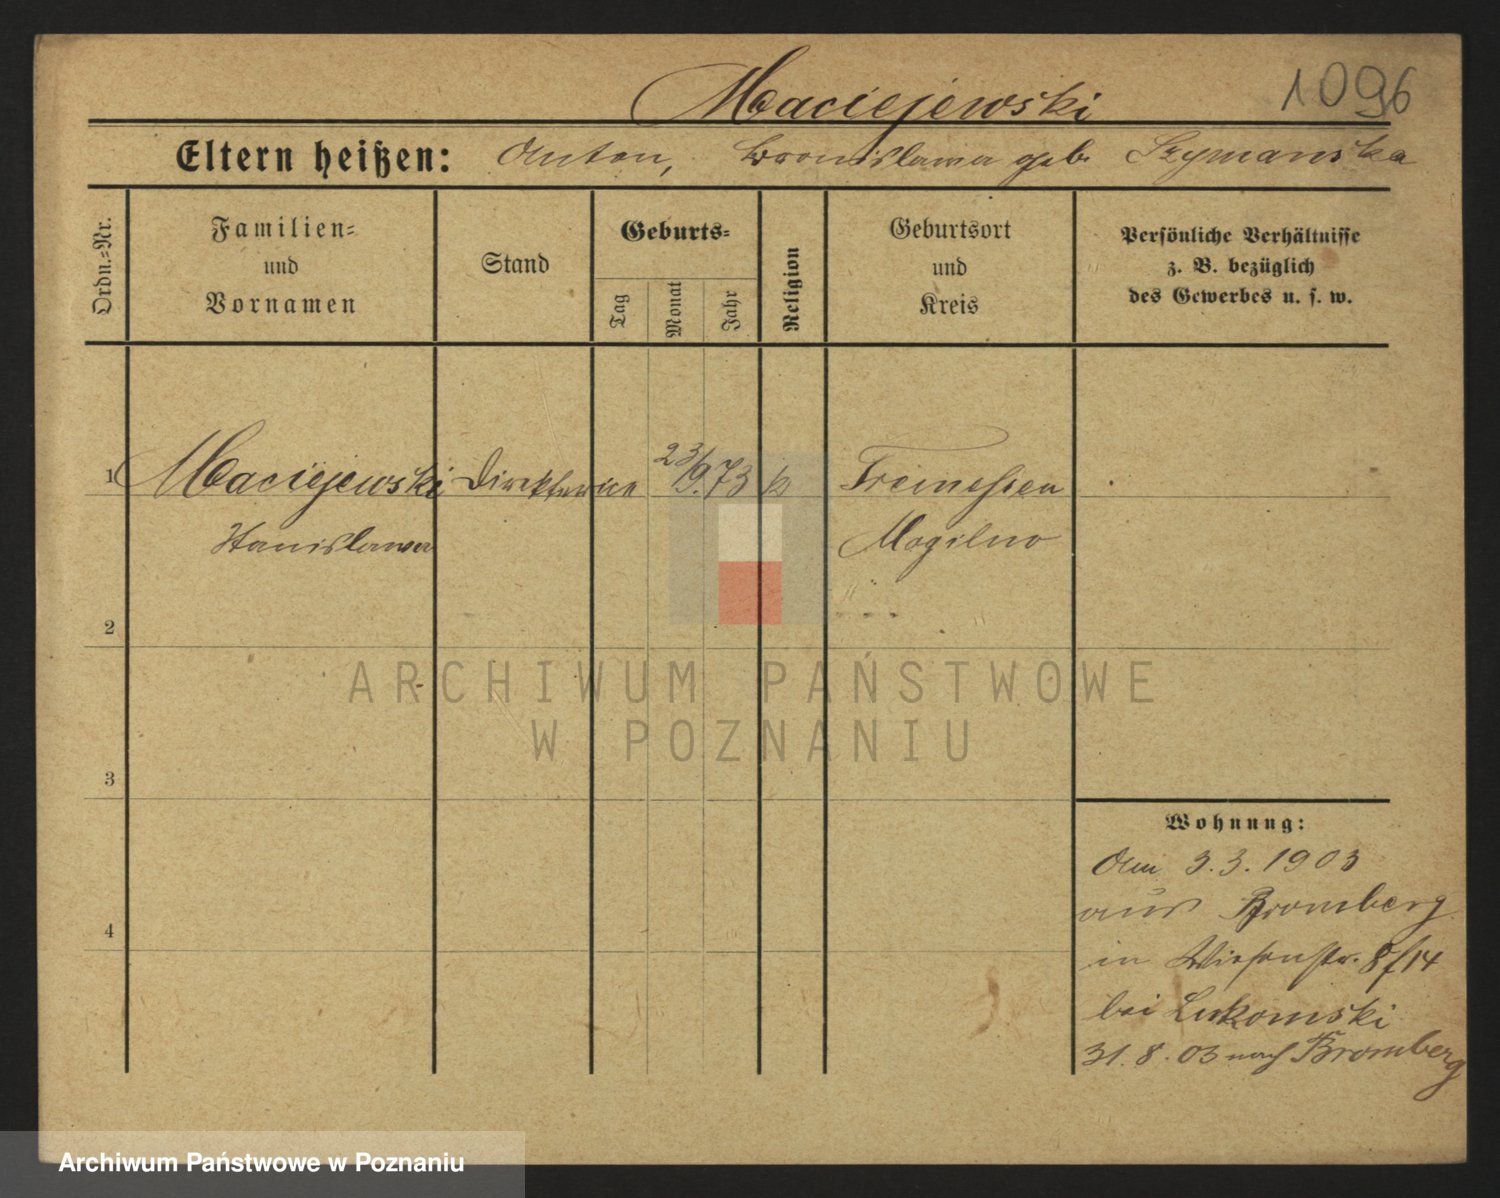 Maciejewski
1096
Eltern heißen: Anton, Bronislawa geb. Szymanska
Ordn.=Nr.
Familien=
und
Vornamen
Stand
Geburts=
Tag
Monat
Jahr
Religion
Geburtsort
und
Kreis
Persönliche Verhältnisse
z. B. bezüglich
des Gewerbes u. s. w.
1 Maciejewski Direktorice 23/9. 73 k Tremessen
Stanislawa Mogilno
2
ARCHIWUM PAŃSTWOWE
W POZNANIU
3
Wohnung:
Am 3.3.1903
aus Bromberg
4
in Wiesenstr. 8/14
bei Lukomski
31.8.03 nach Bromberg
Archiwum Państwowe w Poznaniu